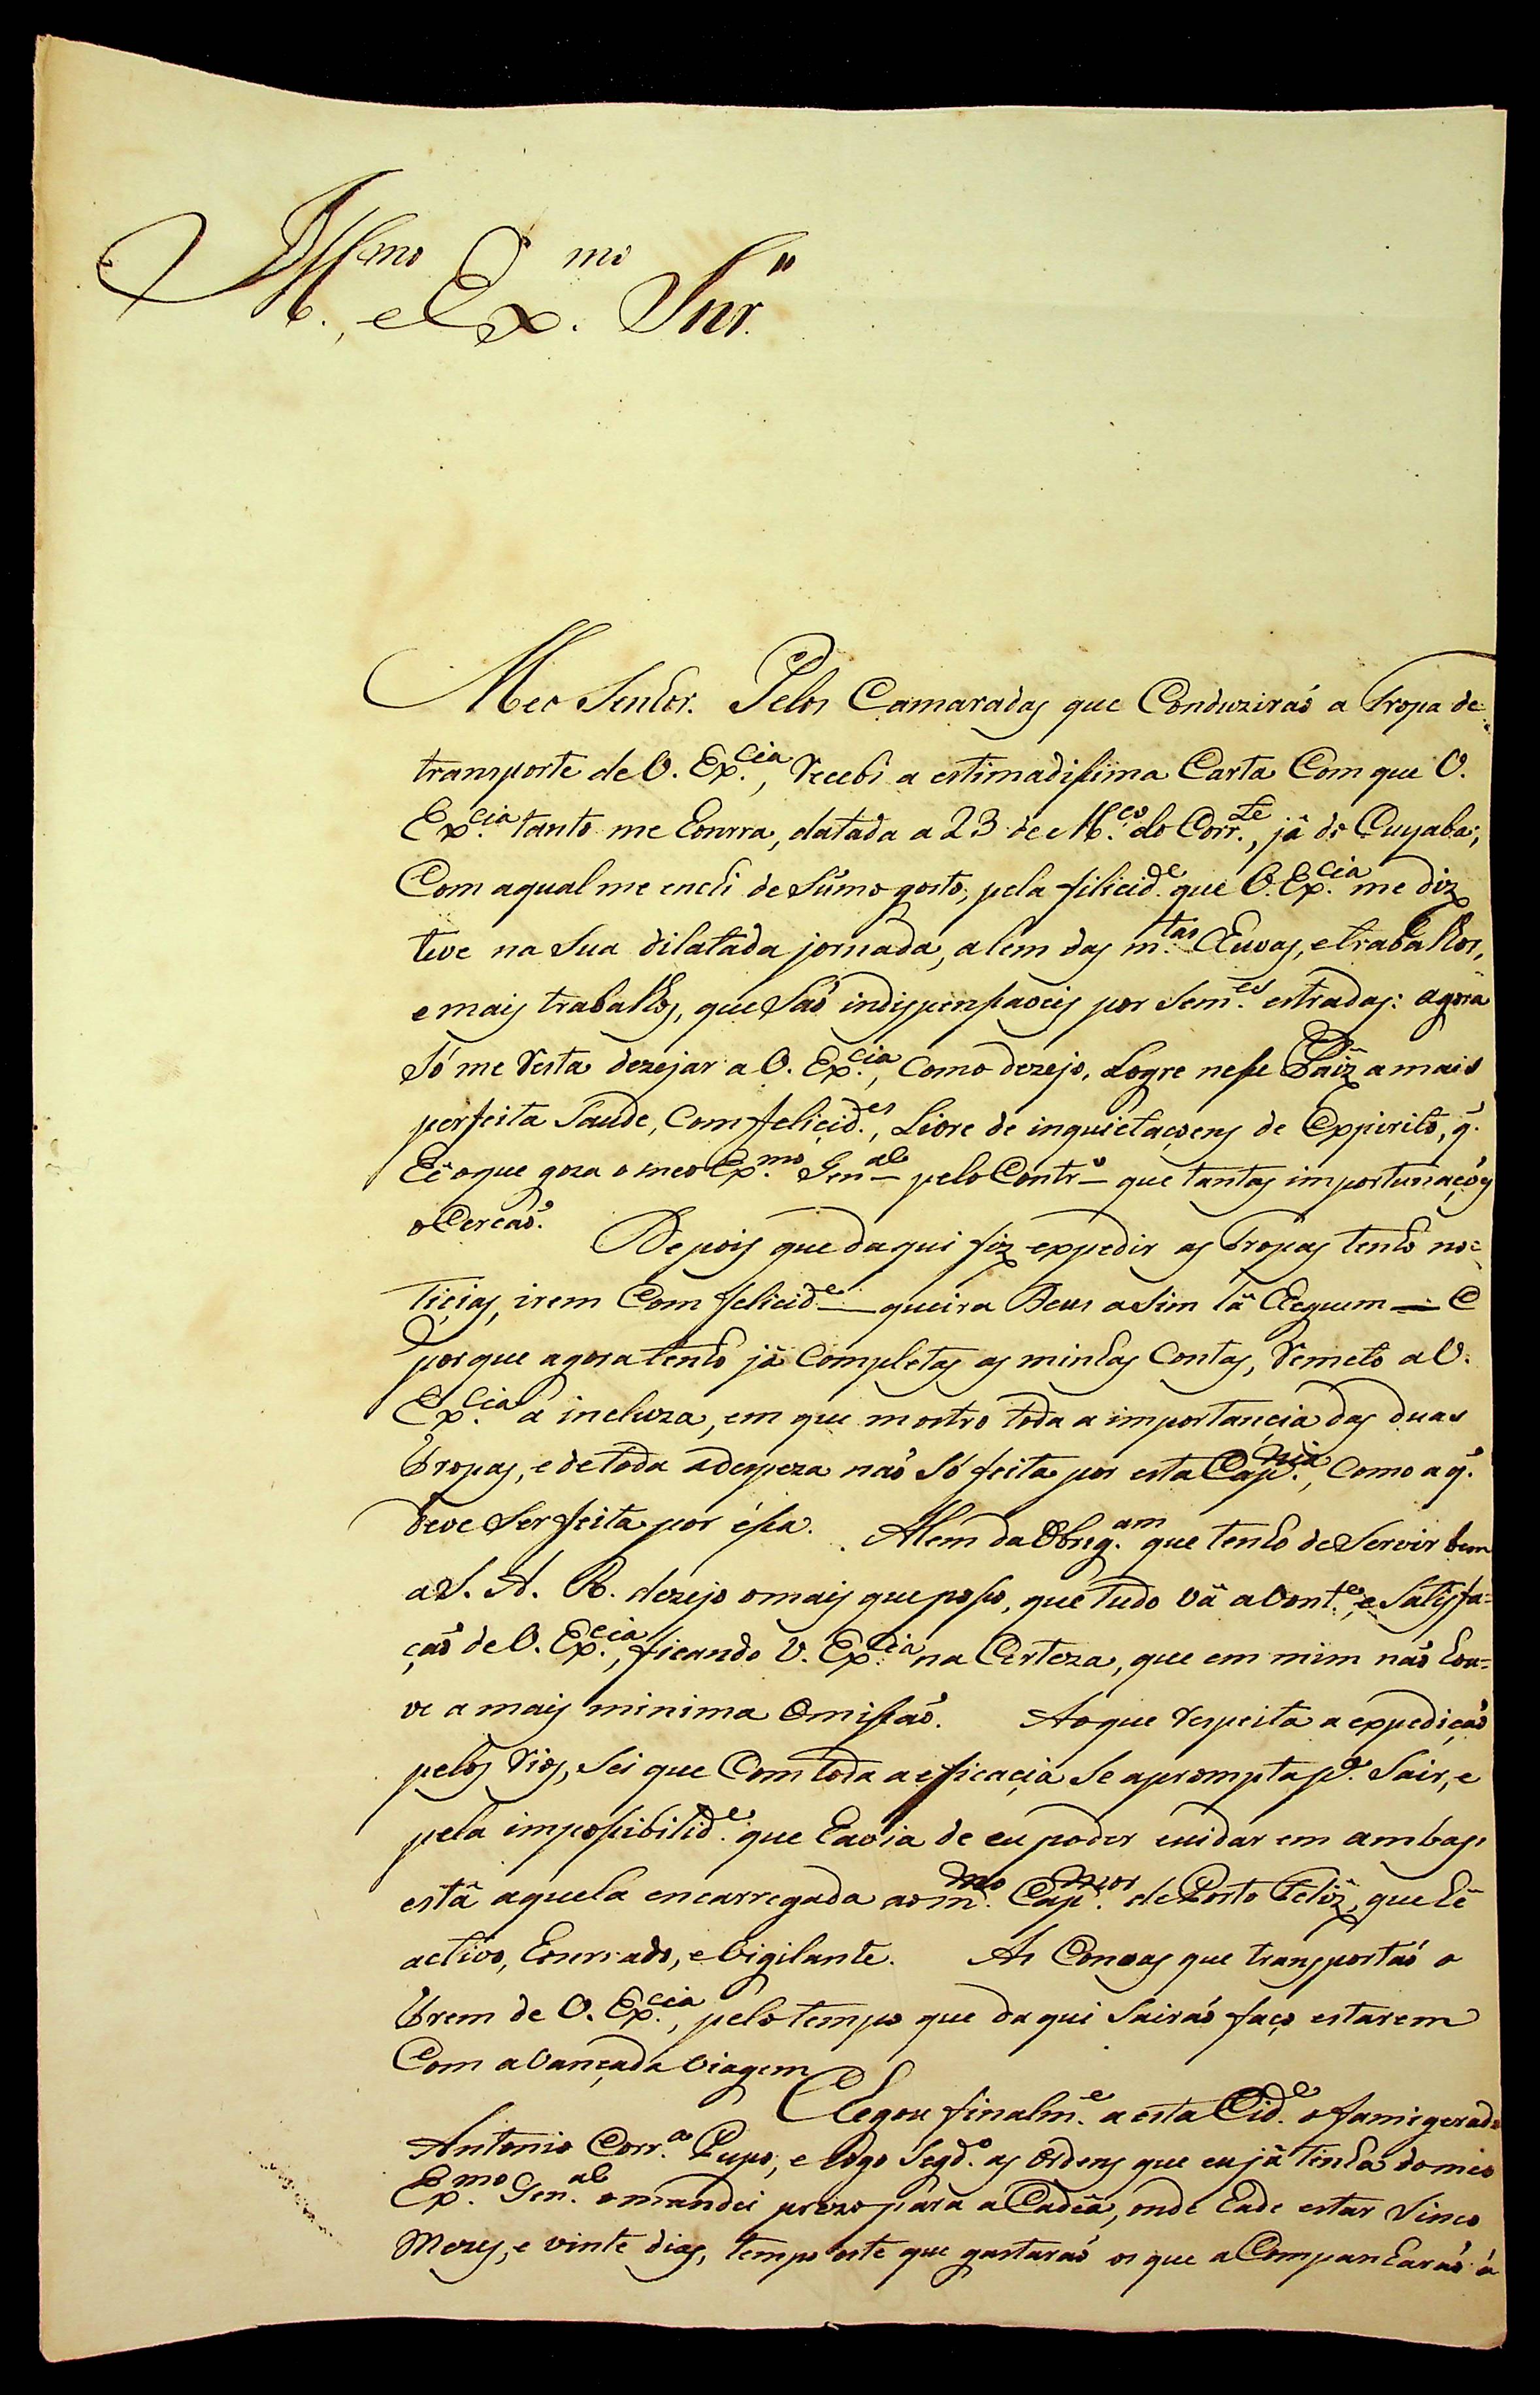 Ill.mo, e Ex.mo Snr."
Meo Senhor. Pelos Camaradas que Conduzirаõ a Tropa de
transporte de V. Ex.cia, recebi a estimadissima Carta Com que V.
Ex.cia tanto me honrra, datada a 23 de M.ço do Corr.te, já do Cuyabá;
Com aqual me enchi de Sûmo gosto, pela filicid.e que V. Ex.cia me diz
teve na Sua dilatada jornada, alem das m.tas Chuvas, etrabalhos,
emais trabalhos, que Saõ indispensaveis por Sem.es estradas: agora
Só me resta dezejar a V. Ex.cia, Como dezejo, Logre nese Paîz amais
perfeita Saude, Com felicid.es, Livre de inquietaçoens de Espirito, q.
hê oque goza o meo Ex.mo Gen.al pelo Contr.o que tantas importunaçoẽs
oCercaõ.
Depois que daqui fiz expedir as Tropas tenho no=
ticias, irem Com felicid.e queira Deus asim lâ Cheguem — E
por que agora tenho jâ Completas as minhas Contas, remeto a V.
Ex.cia a incluza, em que mostro toda a importancia das duas
Tropas, e de toda adespeza naõ Só feita por esta Cap.nia, Como aq.
deve Ser feita por ésa. Alem da Obrig.am que tenho de Servir bem
a S. A. R. dezejo omais que poso, que tudo vâ avont.e, e Satisfa=
çaõ de V. Ex.cia, ficando V. Ex.cia na Certeza, que em mim naõ hou=
ve a mais minima Omisaõ. Aoque respeita a expediçaõ
pelos rios, Sei que Com toda a eficacia Se aprompta p.a Sair, e
pela imposibilid.e que havia de eu poder cuidar em ambas,
estâ aquela encarregada ao m.mo Cap.mor de Porto Felîz, que hê
activo, honrrado, e vigilante. As Canoas que transportaõ o
trem de V. Ex.cia, pelo tempo que daqui Sairaõ faço estarem
Com aVançada viagem
Chegou finalm.e a esta Cid.e o famigerado
Antonio Corr.a Pupo, e Logo Segd.o as Ordens que eu jâ tinha do meo
Ex.mo Gen.al omandei prezo para a Cadêa, onde hade estar Sinco
Mezes, e vinte dias, tempo este que gastaraõ os que aCompanharaõ a